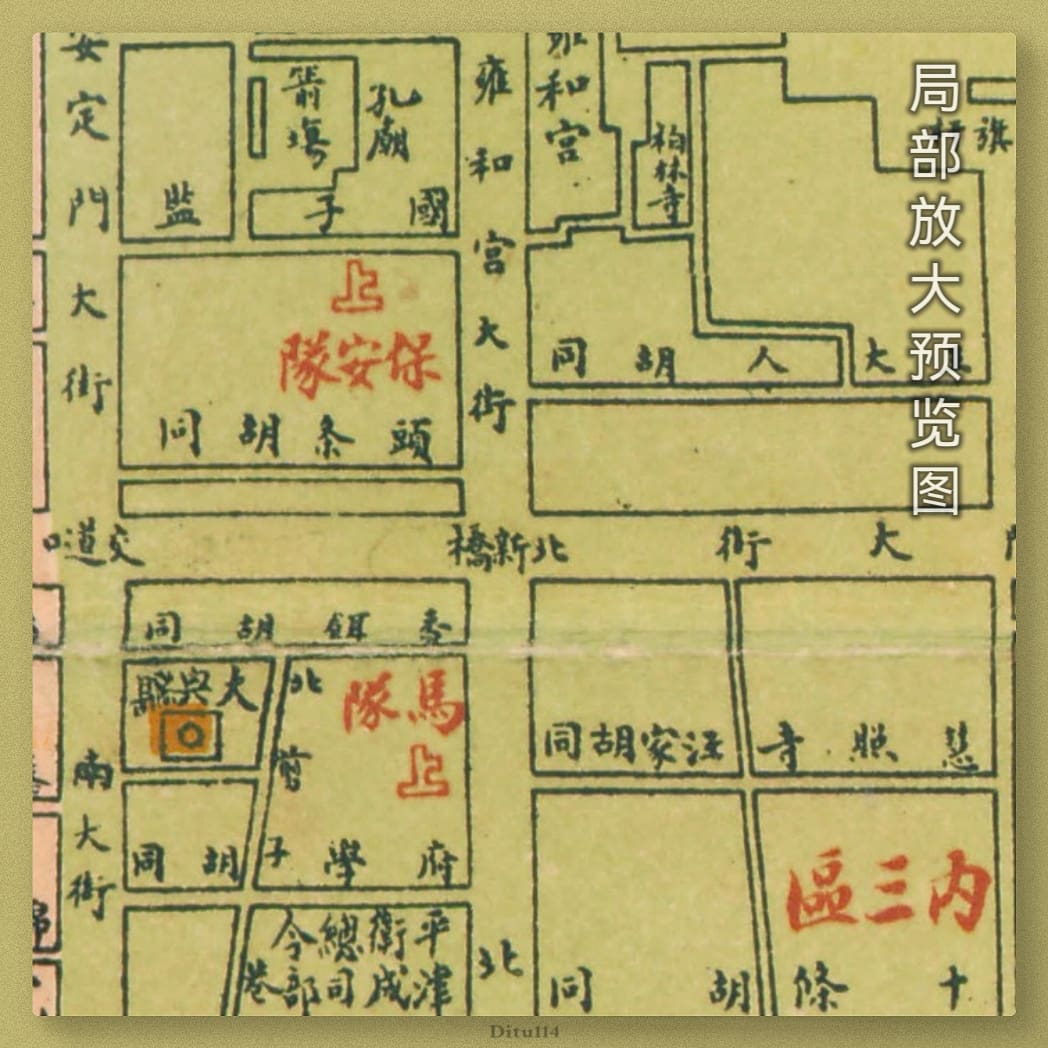 局部放大预览图
安定門大街
雍和宮大街
雍和宮
柏林寺
旗
箭
孔廟
國子監
上
保安隊
頭条胡同
大人胡同
大
交道口
北新橋
大街
香餌胡同
大興縣
北剪子
馬隊
上
汪家胡同
慧照寺
南大街
府學胡同
内三區
平津衛戍總司令部
巷
北
十條胡同
Ditu114